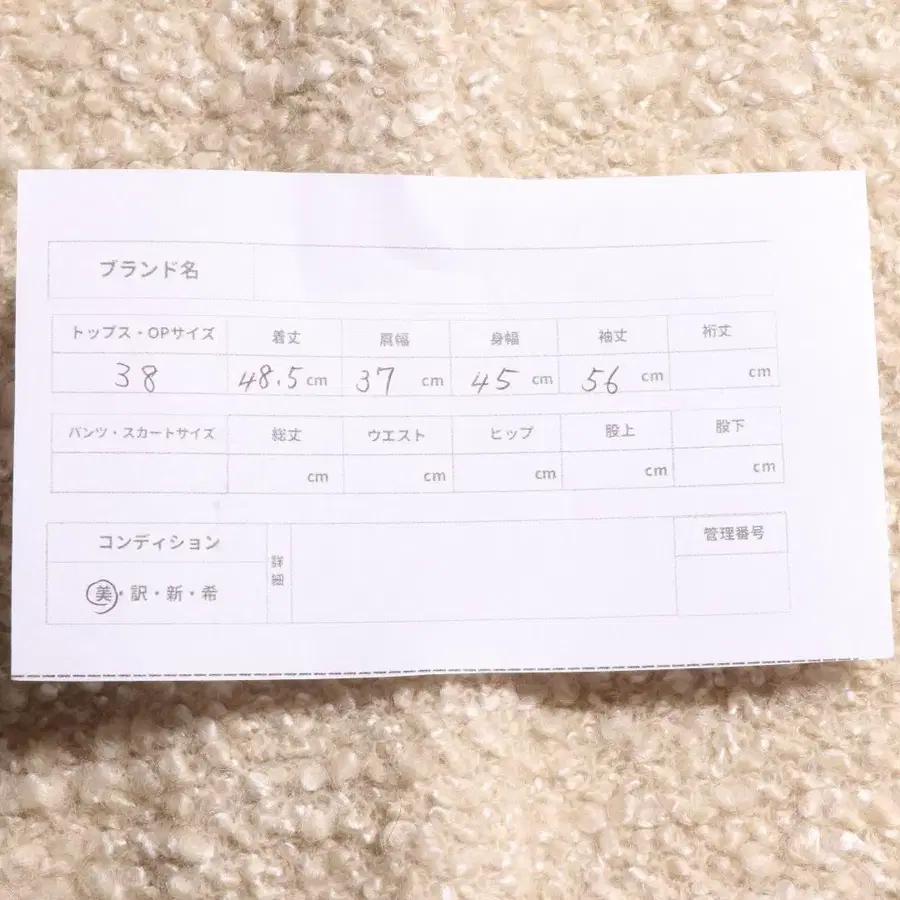 ブランド名
トップス・OPサイズ 着丈 肩幅 身幅 袖丈 裄丈
38 48.5cm 37 cm 45 cm 56 cm cm
パンツ・スカートサイズ 総丈 ウエスト ヒップ 股上 股下
cm cm cm cm cm
コンディション 詳細 管理番号
美・訳・新・希